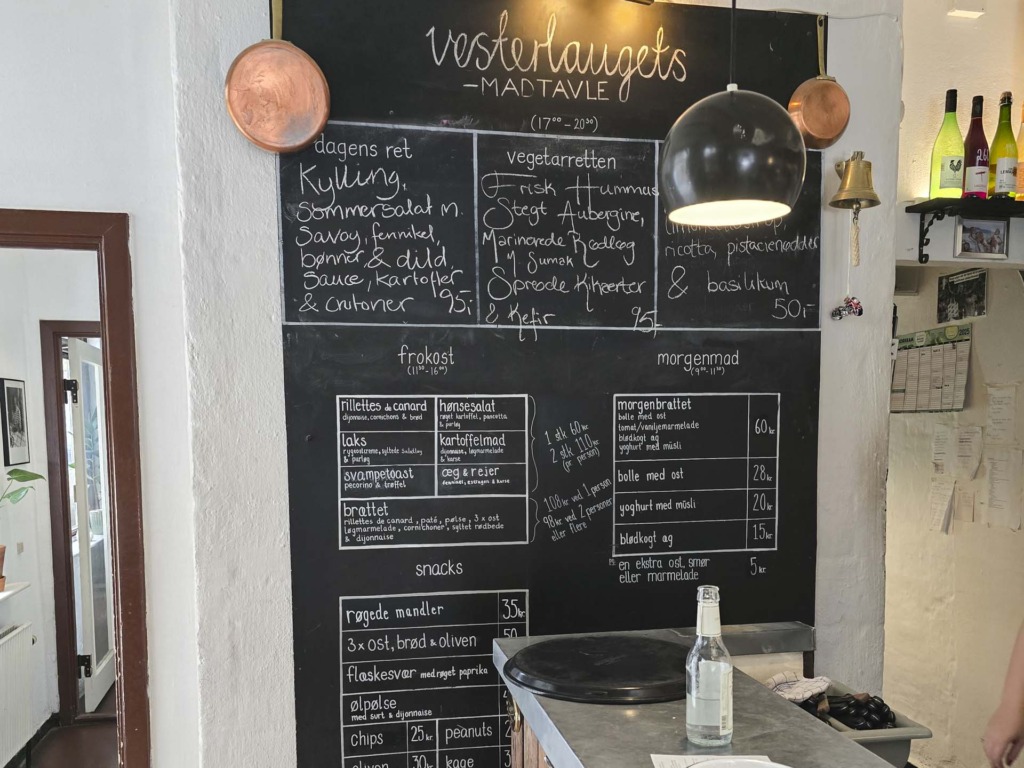 vesterlaugets
-MADTAVLE
(17⁰⁰-20³⁰)
dagens ret
Kylling,
Sommersalat m.
Savoy, fennikel,
bønner & dild
Sauce, kartofler
& crutoner 95,-
vegetarretten
Frisk Hummus
Stegt Aubergine,
Marinerede Rødløg
M Sumak
Sprøde Kikærter
& Kefir 95,-
ricotta, pistacienødder
& basilikum
50,-
frokost
(11³⁰-16⁰⁰)
rillettes de canard
dijonnaise, cornichons & brød
hønsesalat
røget kartoffel, pancetta
& purløg
laks
rygeostcreme, syltede
& purløg
kartoffelmad
dijonnaise, løgmarmelade
& karse
svampetoast
pecorino & trøffel
æg & rejer
fennikel, estragon & karse
brættet
rillettes de canard, paté, pølse, 3 x ost
løgmarmelade, cornichoner, syltet rødbede
& dijonnaise
1 stk 60 kr
2 stk 110 kr
(pr person)
108 kr ved 1 person
98 kr ved 2 personer
eller flere
morgenmad
(9⁰⁰-11³⁰)
morgenbrættet
bolle med ost
tomat/vaniljemarmelade
blødkogt æg
yoghurt med müsli
60 kr
bolle med ost 28 kr
yoghurt med müsli 20 kr
blødkogt æg 15 kr
en ekstra ost, smør
eller marmelade 5 kr
snacks
røgede mandler 35 kr
3 x ost, brød & oliven 50
flæskesvær med røget paprika
ølpølse
med surt & dijonnaise
chips 25 kr peanuts
oliven 30 kr kage